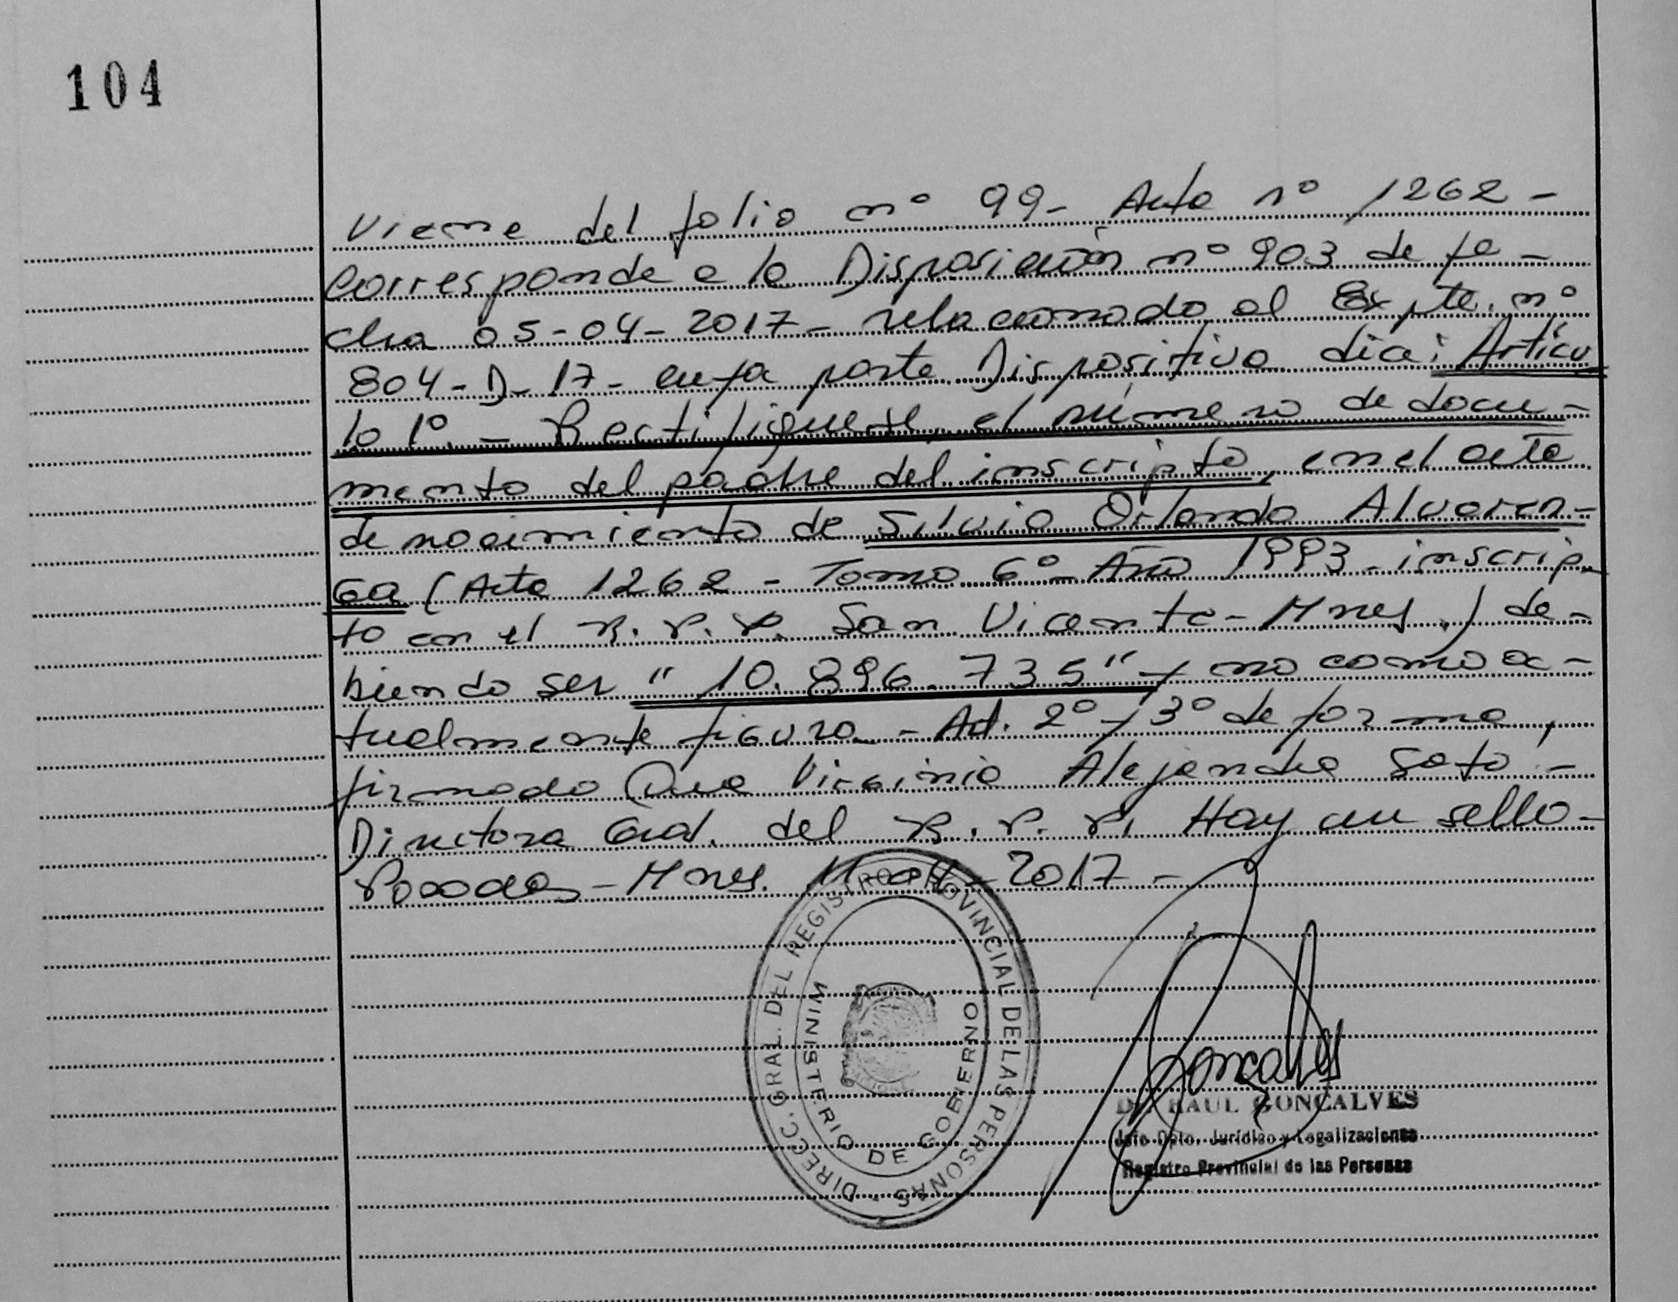 104
Viene del folio nº 99- Acta nº 1262-
Corresponde a la Disposición nº 903 de fe-
cha 05-04-2017- relacionado al Expte. nº
804-D-17- cuya parte Dispositiva dice: Artícu
lo 1º.- Rectifíquese, el número de docu-
mento del padre del inscripto, en el acta
de nacimiento de Silvio Orlando Alvaren-
ga (Acta 1262 - Tomo 6º- Año 1993 - inscrip-
to en el R.P.P. San Vicente- Mnes.) de-
biendo ser "10.896.735" y no como ac-
tualmente figura.- Art. 2º y 3º de forma,
firmado Dra Virginia Alejandra Soto-
Directora Gral. del R.P.P. Hay un sello-
Posadas- Mnes. 11-04-2017-
DIRECC. GRAL. DEL REGISTRO PROVINCIAL DE LAS PERSONAS
MINISTERIO DE GOBIERNO
Gonçalves
Dr. RAUL GONÇALVES
Jefe Dpto. Jurídico y Legalizaciones
Registro Provincial de las Personas